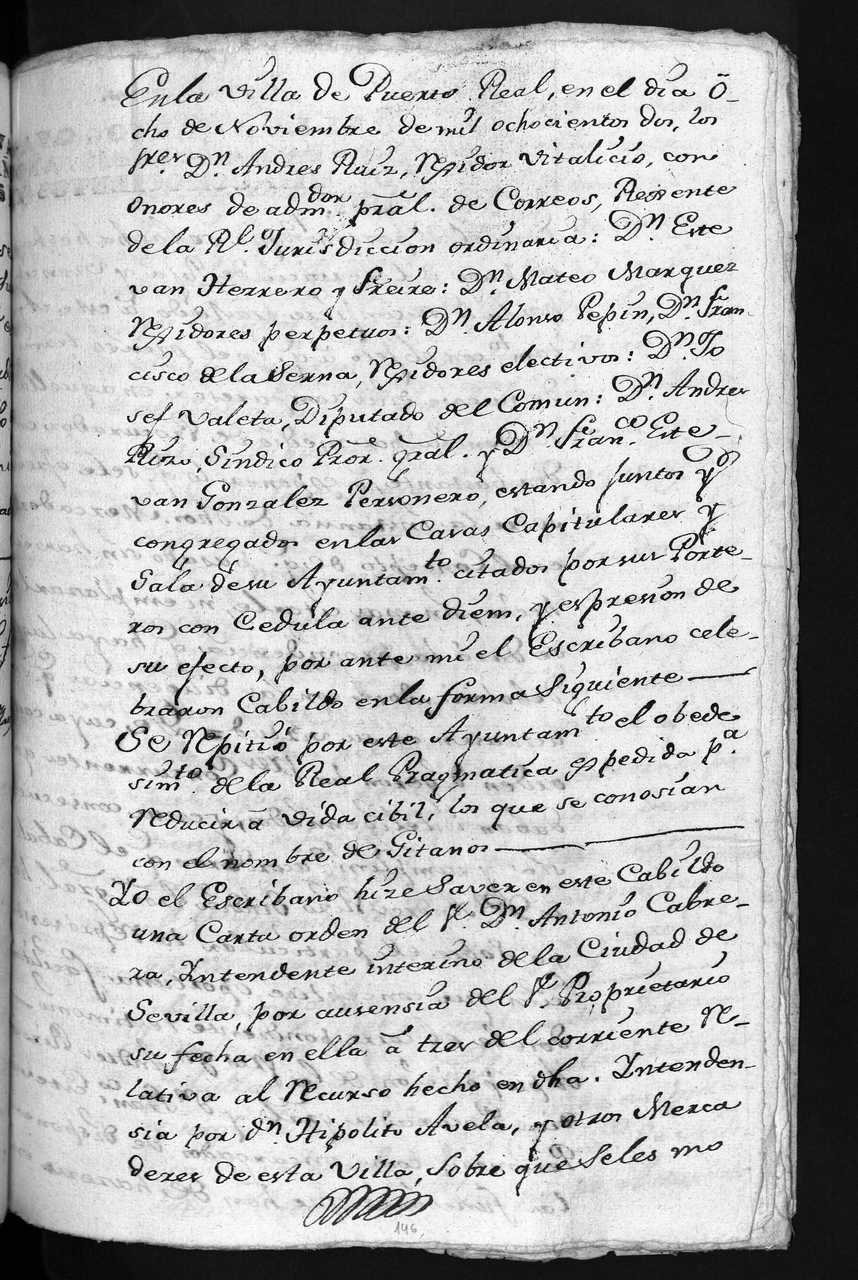 En la Villa de Puerto Real, en el dia O-
cho de Noviembre de mil ochocientos dos, los
Sres. Dn. Andres Ruiz, Rejidor Vitalicio, con
onores de admdor. pral. de Correos, Rexente
de la Rl. Jurisdiccion ordinaria: Dn. Este
van Herrero y Freire: Dn. Mateo Marquez
Rejidores perpetuos: Dn. Alonso Pepin, Dn. Fran-
cisco de la Serna, Rejidores electivos: Dn. Jo
sef Valeta, Diputado del Comun: Dn. Andres
Sindico Pror. gral. y Dn. Franco. Este-
van Gonzalez Personero, estando juntos y
congregados en las Casas Capitulares y
Sala de su Ayuntamto. citados por sus Porte-
ros con Cedula ante diem, y espresion de
su efecto, por ante mi el Escribano cele-
braron Cabildo en la forma Siguiente
Se Repitió por este Ayuntamto. el obede
simto. de la Real Pragmatica espedida pa.
Reducir á vida cibil, los que se conosian
con el nombre de Gitanos
Yo el Escribano hize Saver en este Cabildo
una Carta orden del Sr. Dn. Antonio Cabre-
ra, Yntendente interino de la Ciudad de
Sevilla, por ausensia del Sr. Proprietario
su fecha en ella á tres del corriente Re-
lativa al Recurso hecho en dha. Yntenden-
sia por dn. Hipolito Avela, y otros Merca
deres de esta Villa, Sobre que Seles mo
146